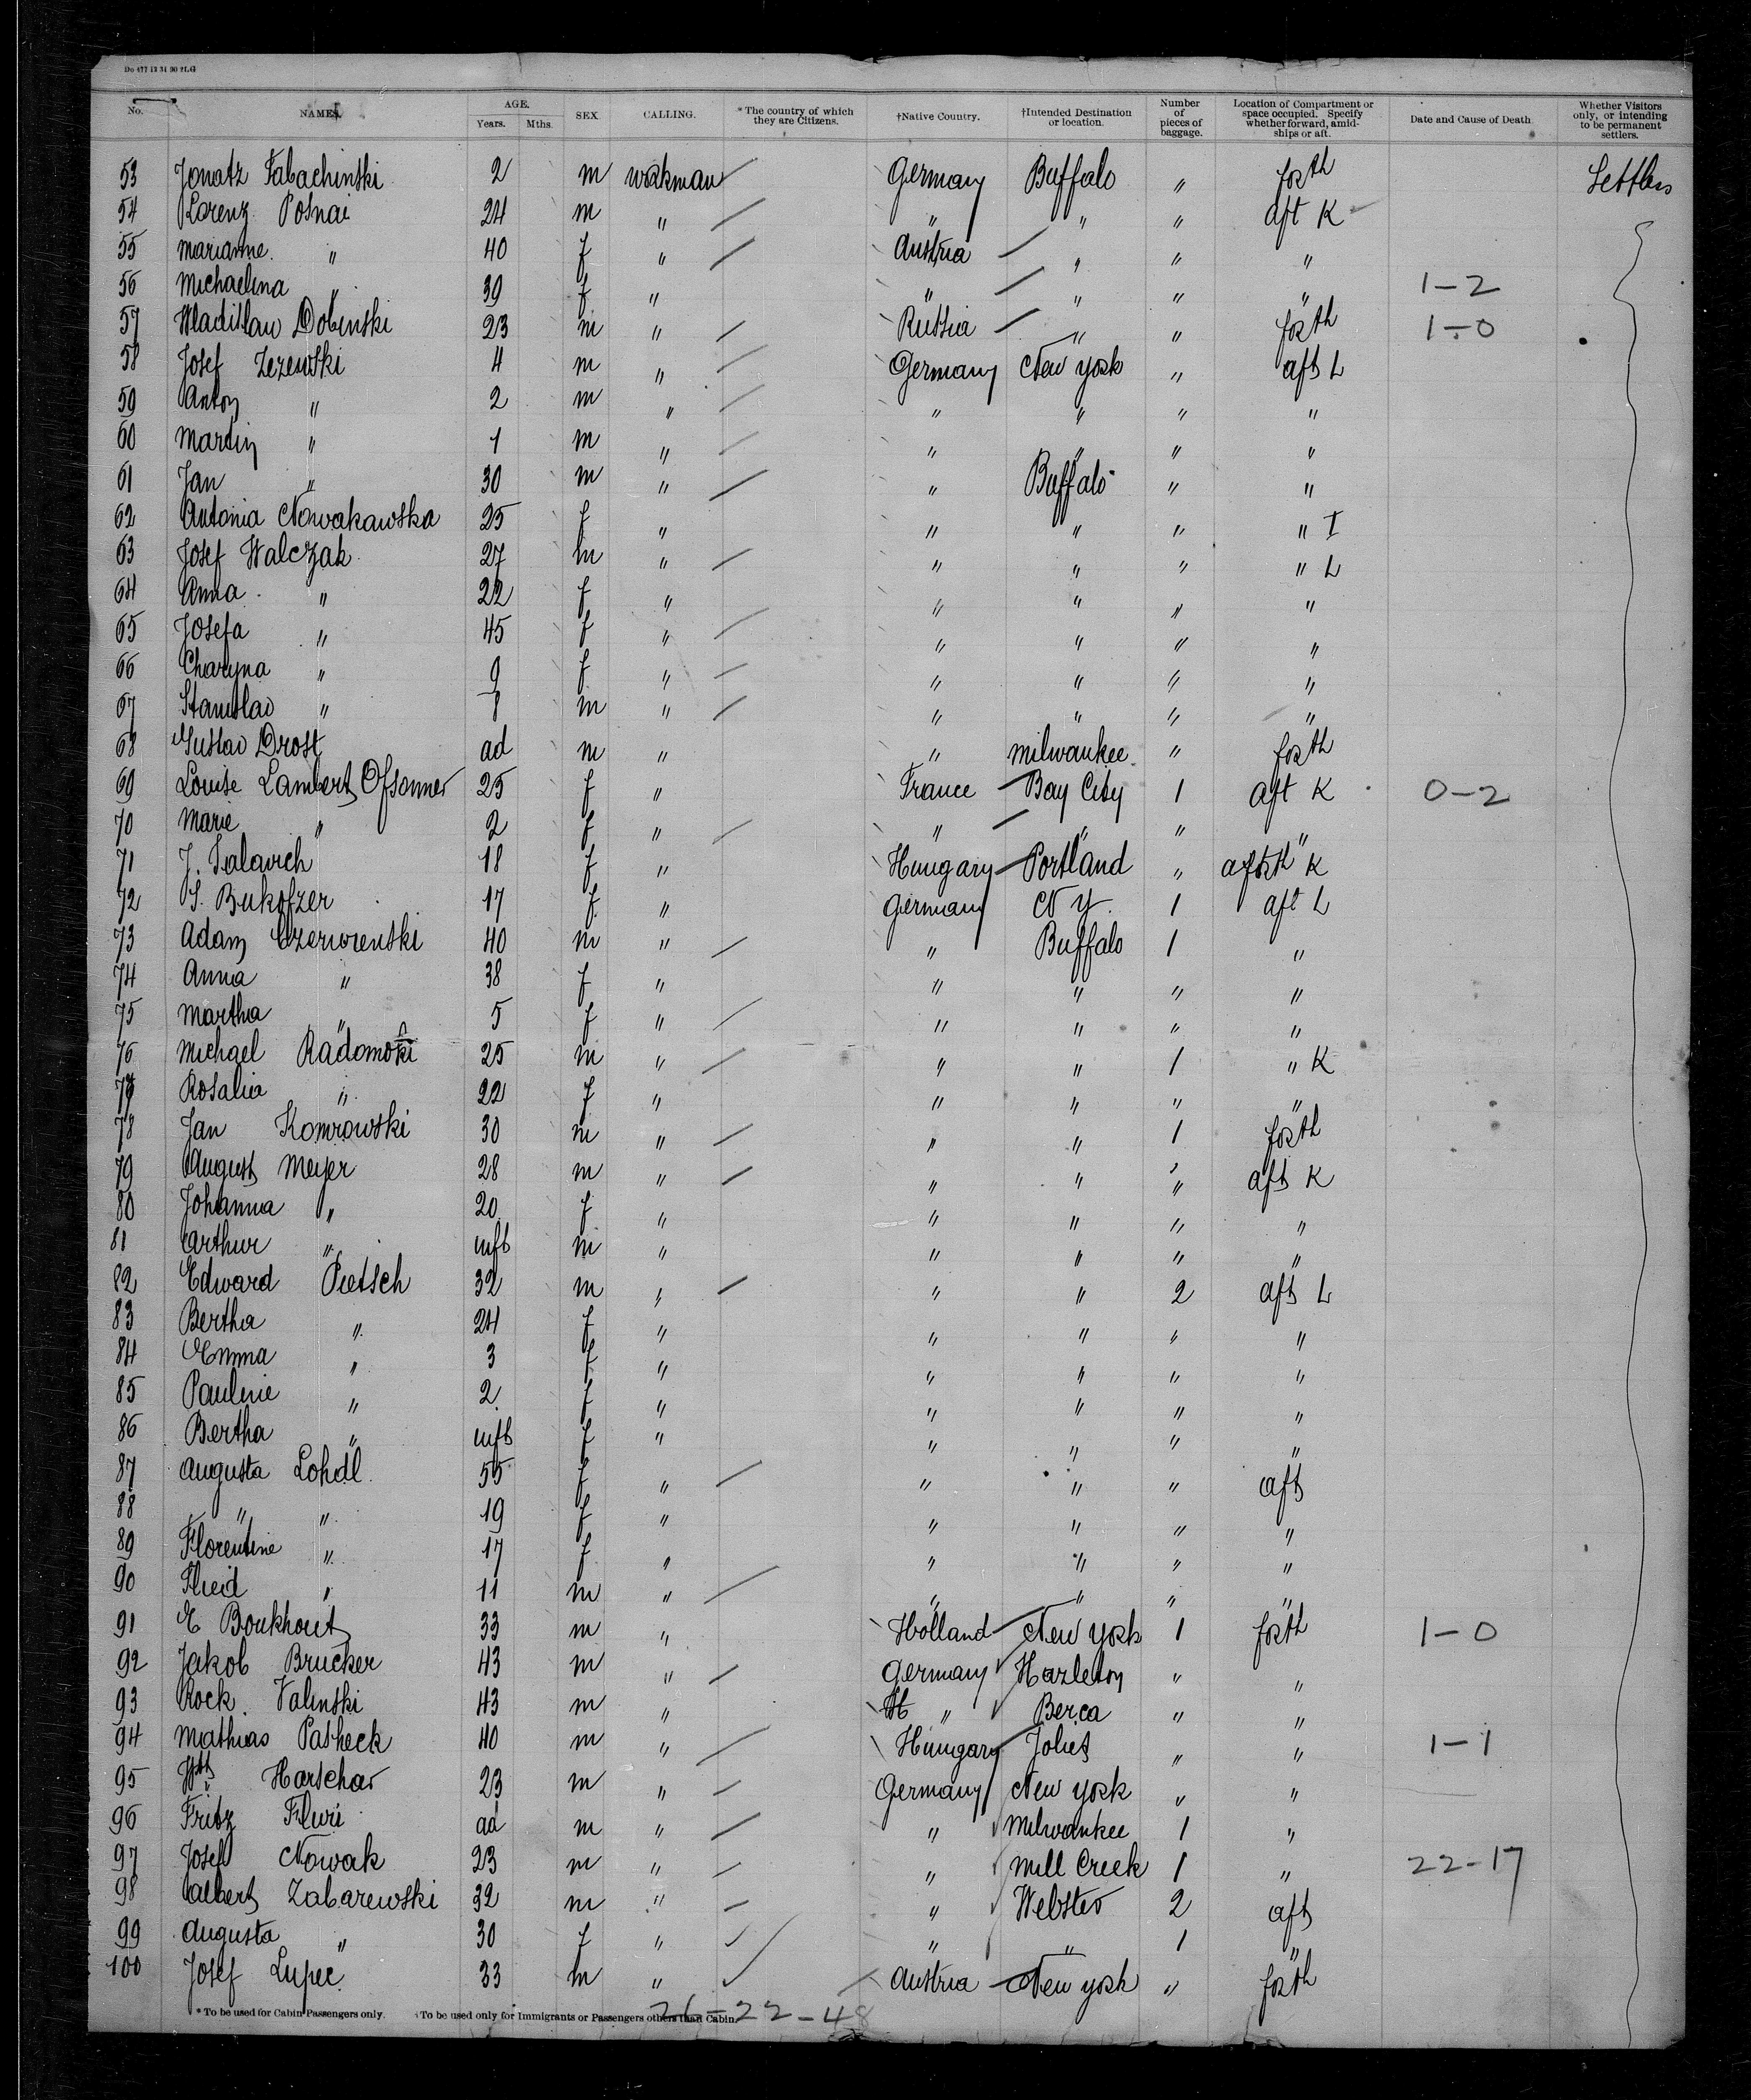 Do 477 12 31 90 2LG
No. NAMES. AGE. Years. Mths. SEX CALLING. * The country of which they are Citizens. †Native Country. †Intended Destination or location. Number of pieces of baggage. Location of Compartment or space occupied. Specify whether forward, amidships or aft. Date and Cause of Death Whether Visitors only, or intending to be permanent settlers.
53 Jonatz Tabachinski 2 m workman Germany Buffalo " forth Settlers
54 Lorenz Posnai 24 m " " " " aft K
55 Marianne " 40 f " Austria " " "
56 Michaelina " 39 f " " " " " 1-2
57 Wladislaw Dobinski 23 m " Russia " " forth 1-0
58 Josef Zezewski 4 m " Germany New York " aft L
59 Anton " 2 m " " " " "
60 Martin " 1 m " " " " "
61 Jan " 30 m " " Buffalo " "
62 Antonia Nowakawska 25 f " " " " " I
63 Josef Walczak 27 m " " " " " L
64 Anna " 22 f " " " " "
65 Josefa " 45 f " " " " "
66 Charyna " 9 f " " " " "
67 Stanislav " 8 m " " " " "
68 Gustav Drost ad m " " Milwaukee " forth
69 Louise Lambert Ofsomer 25 f " France Bay City 1 aft K 0-2
70 Marie " 2 f " " " " "
71 J. Salavich 18 f " Hungary Portland " aft K
72 S. Bukofzer 17 f " Germany N Y. 1 aft L
73 Adam Czerwienski 40 m " " Buffalo 1 "
74 Anna " 38 f " " " " "
75 Martha " 5 f " " " " "
76 Michael Radomski 25 m " " " 1 " K
77 Rosalia " 22 f " " " " "
78 Jan Komrowski 30 m " " " 1 forth
79 August Meyer 28 m " " " " aft K
80 Johanna " 20 f " " " " "
81 Arthur " inft m " " " " "
82 Edward Pietsch 32 m " " " 2 aft L
83 Bertha " 24 f " " " " "
84 Emma " 3 f " " " " "
85 Pauline " 2 f " " " " "
86 Bertha " inft f " " " " "
87 Augusta Lohdl 55 f " " " " aft
88 " " 19 f " " " " "
89 Florentine " 17 f " " " " "
90 " 11 m " " " " "
91 E Boukhout 33 m " Holland New York 1 forth 1-0
92 Jakob Brucker 43 m " Germany Hazleton " "
93 Rock Valinski 43 m " " Berea " "
94 Mathias Pasheck 40 m " Hungary Joliet " " 1-1
95 Harschar 23 m " Germany New York " "
96 Fritz Fluri ad m " " Milwaukee 1 "
97 Josef Nowak 23 m " " Mill Creek 1 " 22-17
98 Albert Zabarewski 32 m " " Webster 2 aft
99 Augusta " 30 f " " " 1 "
100 Josef Lupec 33 m " Austria New York " forth
* To be used for Cabin Passengers only. †To be used only for Immigrants or Passengers others than Cabin. 26-22-48